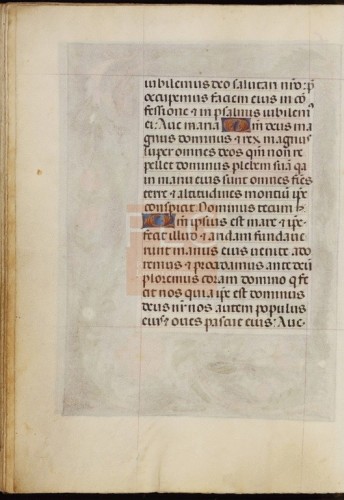 iubilemus deo salutari nr̄o: p̄
occupemus faciem eius in cō
fessione ⁊ in psalmis iubilem⁹
ei: Aue maria Qm̄ deus ma
gnus dominus ⁊ rex magnus
super omnes deos qm̄ non re
pellet dominus plebem suā q̄a
in manu eius sunt omnes fīes
terre ⁊ altitudines montiū ip̄e
conspicit Dominus tecum
Qm̄ ipsius est mare ⁊ ip̄e
fecit illud ⁊ aridam fundaue
runt manus eius uenite ado
remus ⁊ procidamus ante deū
ploremus coram domino q̄ fe
cit nos quia ip̄e est dominus
deus nr̄ nos autem populus
eius ⁊ oues pascue eius: Aue